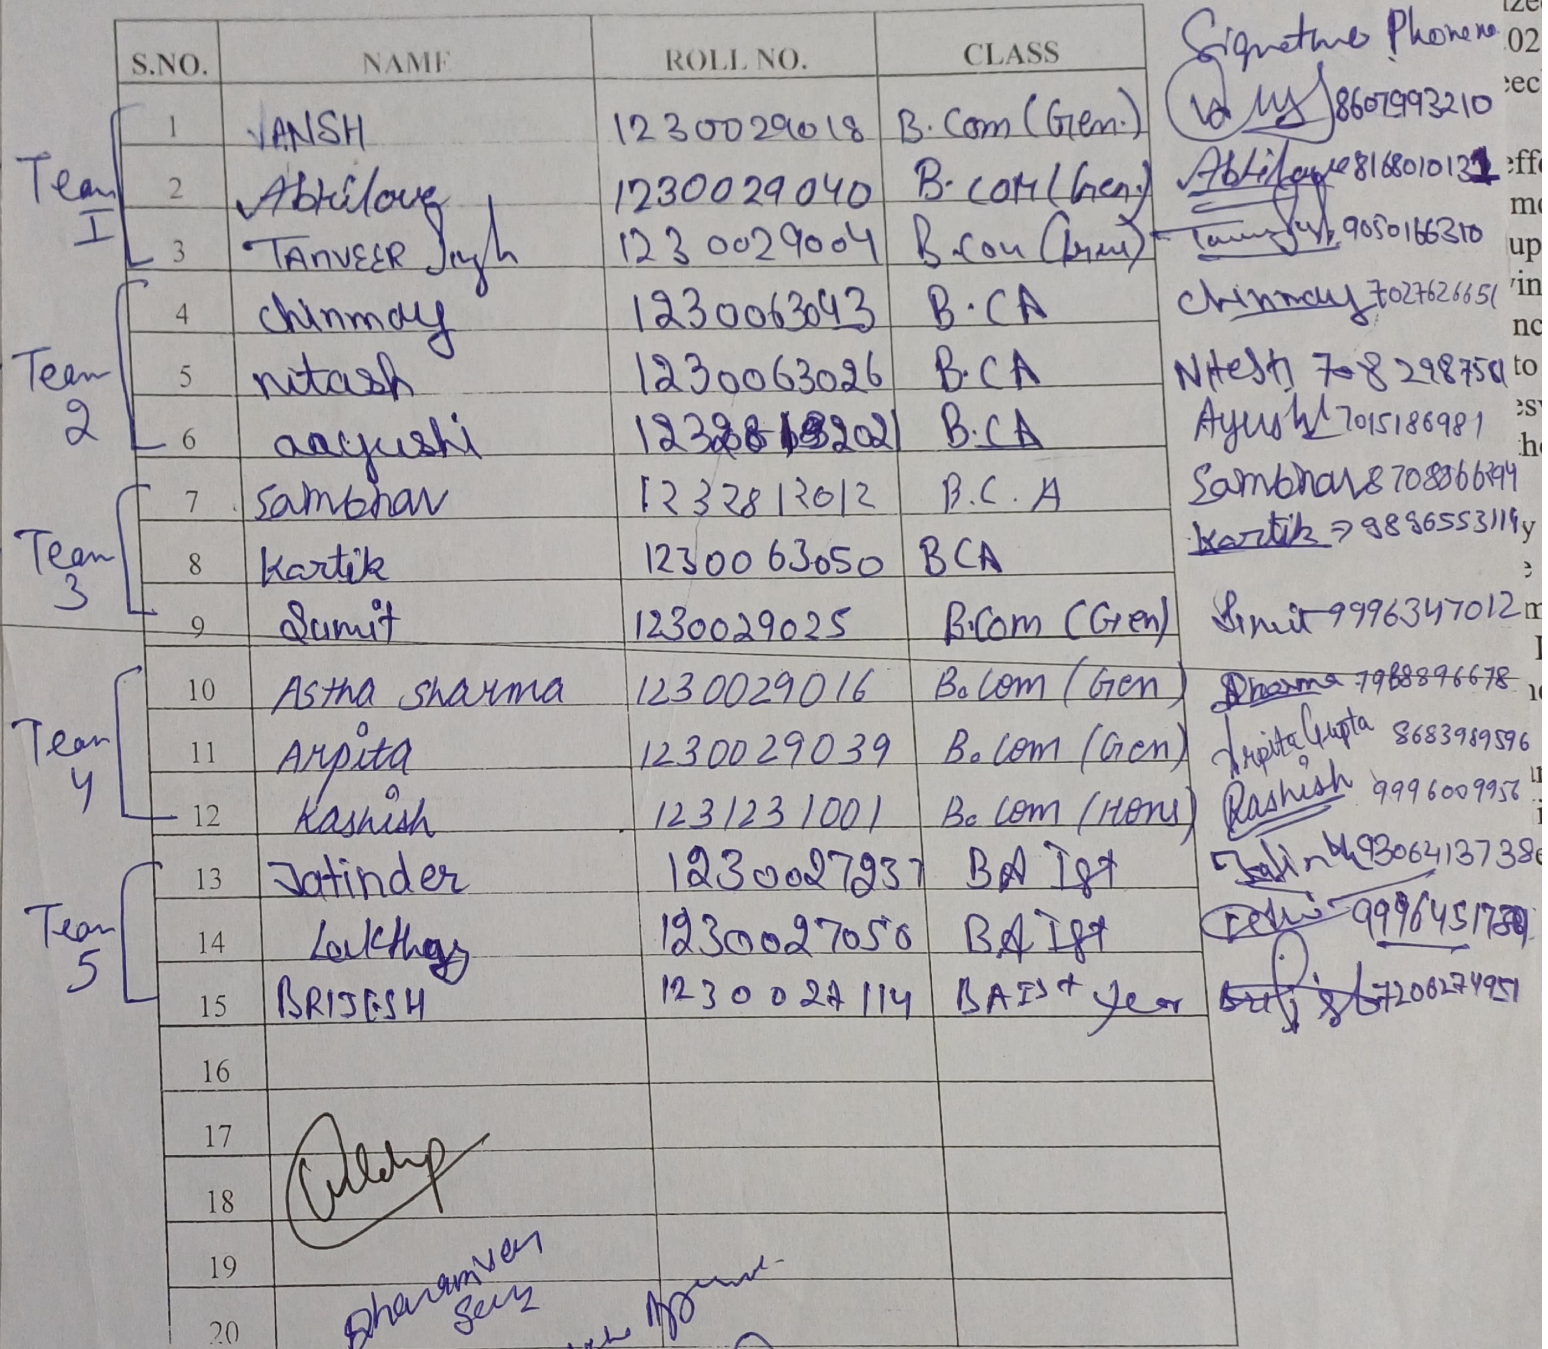 S.NO. NAME ROLL NO. CLASS Signature Phone no. 02
Team I
1 VANSH 1230029018 B.Com (Gen.) 8607993210
2 Abhilove 1230029040 B.COM (Gen.) Abhilove 8168010131
3 TANVEER Singh 1230029004 B.Com (Gen) 9050166310 up
Team 2
4 chinmay 1230063043 B.CA Chinmay 7027626651
5 nitash 1230063026 B.CA Nitesh to
6 aayushi B.CA Ayushi 7015186981
Team 3
7 Sambhav 1232812012 B.C.A Sambhav
8 Kartik 1230063050 BCA Kartik → y
9 Sumit 1230029025 B.Com (Gen) Sumit 9996347012
Team 4
10 Astha Sharma 1230029016 B.Com (Gen) Sharma 7988896678
11 Arpita 1230029039 B.Com (Gen) Arpita Gupta 8683989596
12 Kashish 1231231001 B.Com (Hons) Kashish 9996009956
Team 5
13 Jatinder 1230027237 BA Ist 9306413738
14 1230027050 BA Ist
15 BRIJESH 1230027114 BA Ist year 7206274951
16
17
18
19
20